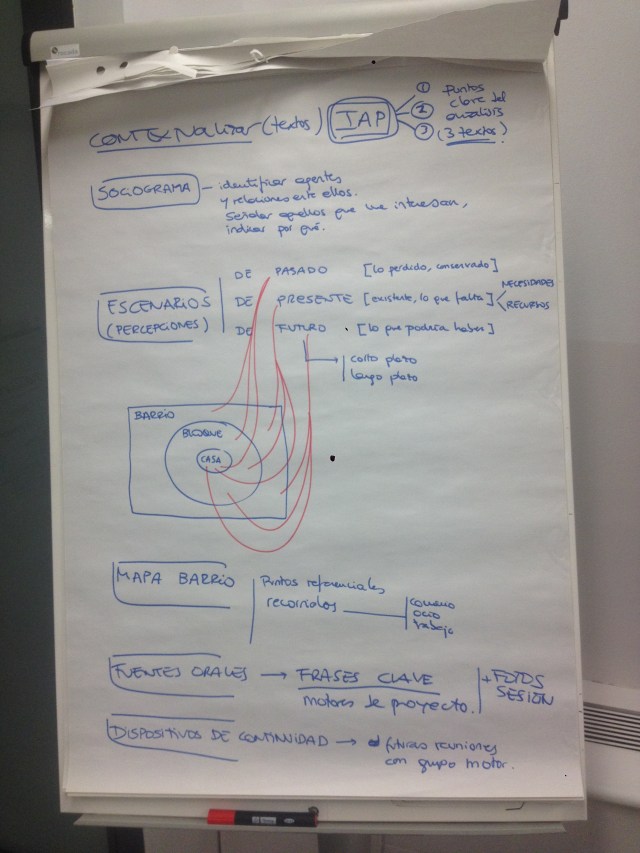 CONTEXTUALIZAR (textos) IAP
① Puntos clave del analisis
②
③ (3 textos)
SOCIOGRAMA - identificar agentes
y relaciones entre ellos.
Señalar aquellos que me interesan,
indicar por qué.
ESCENARIOS
(PERCEPCIONES)
DE PASADO [lo perdido, conservado]
DE PRESENTE [existente, lo que falta] NECESIDADES
RECURSOS
DE FUTURO [lo que podría haber]
corto plazo
largo plazo
BARRIO
BLOQUE
CASA
MAPA BARRIO
Puntos referenciales
recorridos
comercio
ocio
trabajo
FUENTES ORALES → FRASES CLAVE
motores de proyecto.
+ FOTOS
SESIÓN
DISPOSITIVOS DE CONTINUIDAD → futuras reuniones
con grupo motor.